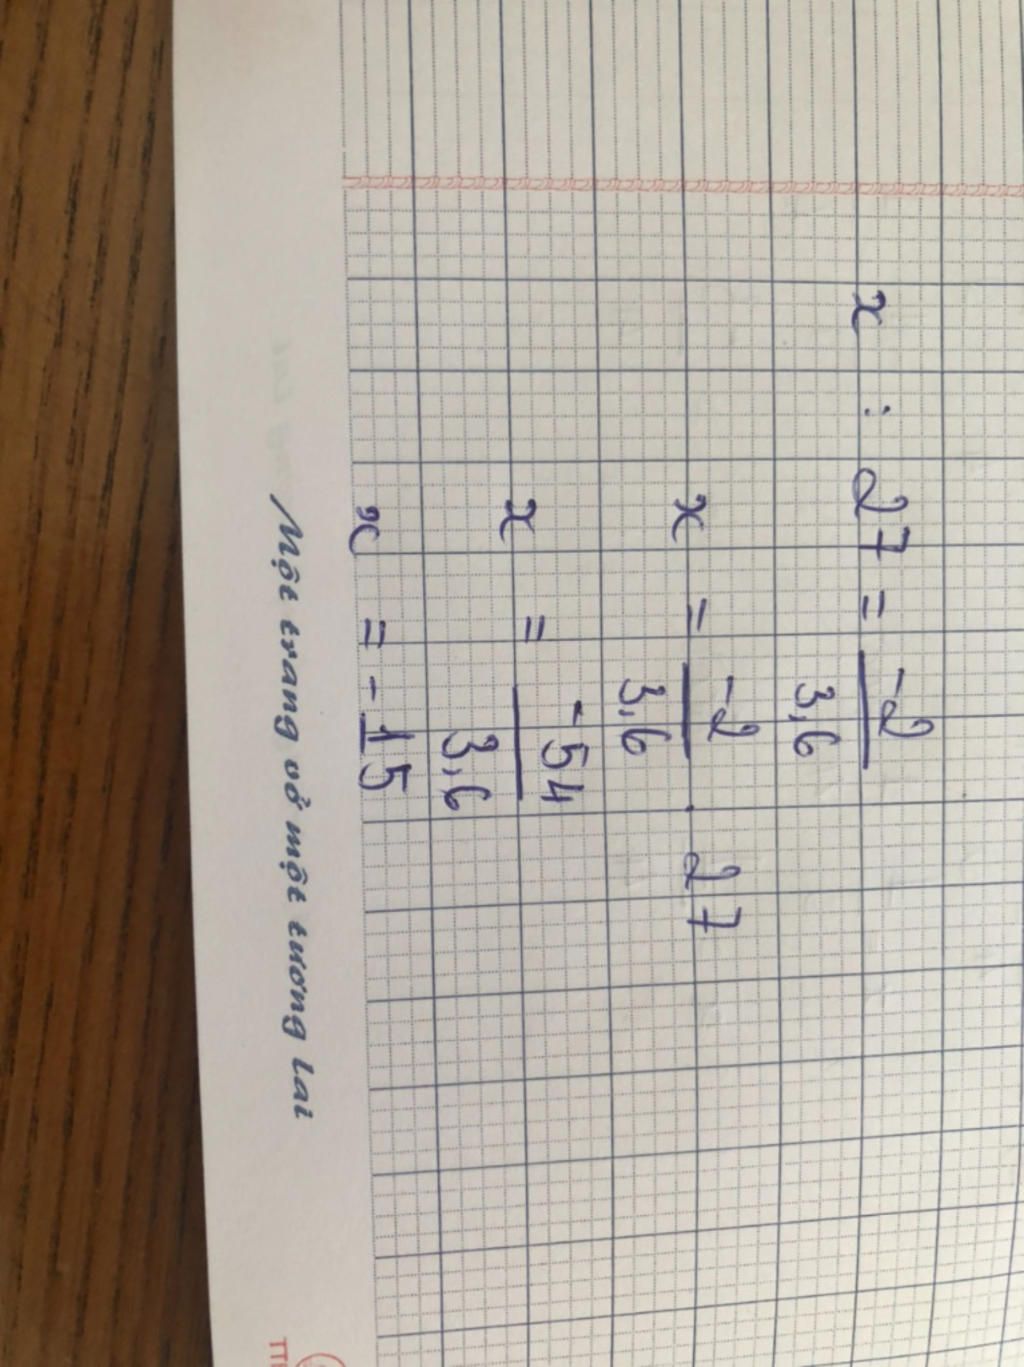 x : 27 = -2/3,6
x = -2/3,6 . 27
x = -54/3,6
x = -15
Một trang vở một tương lai